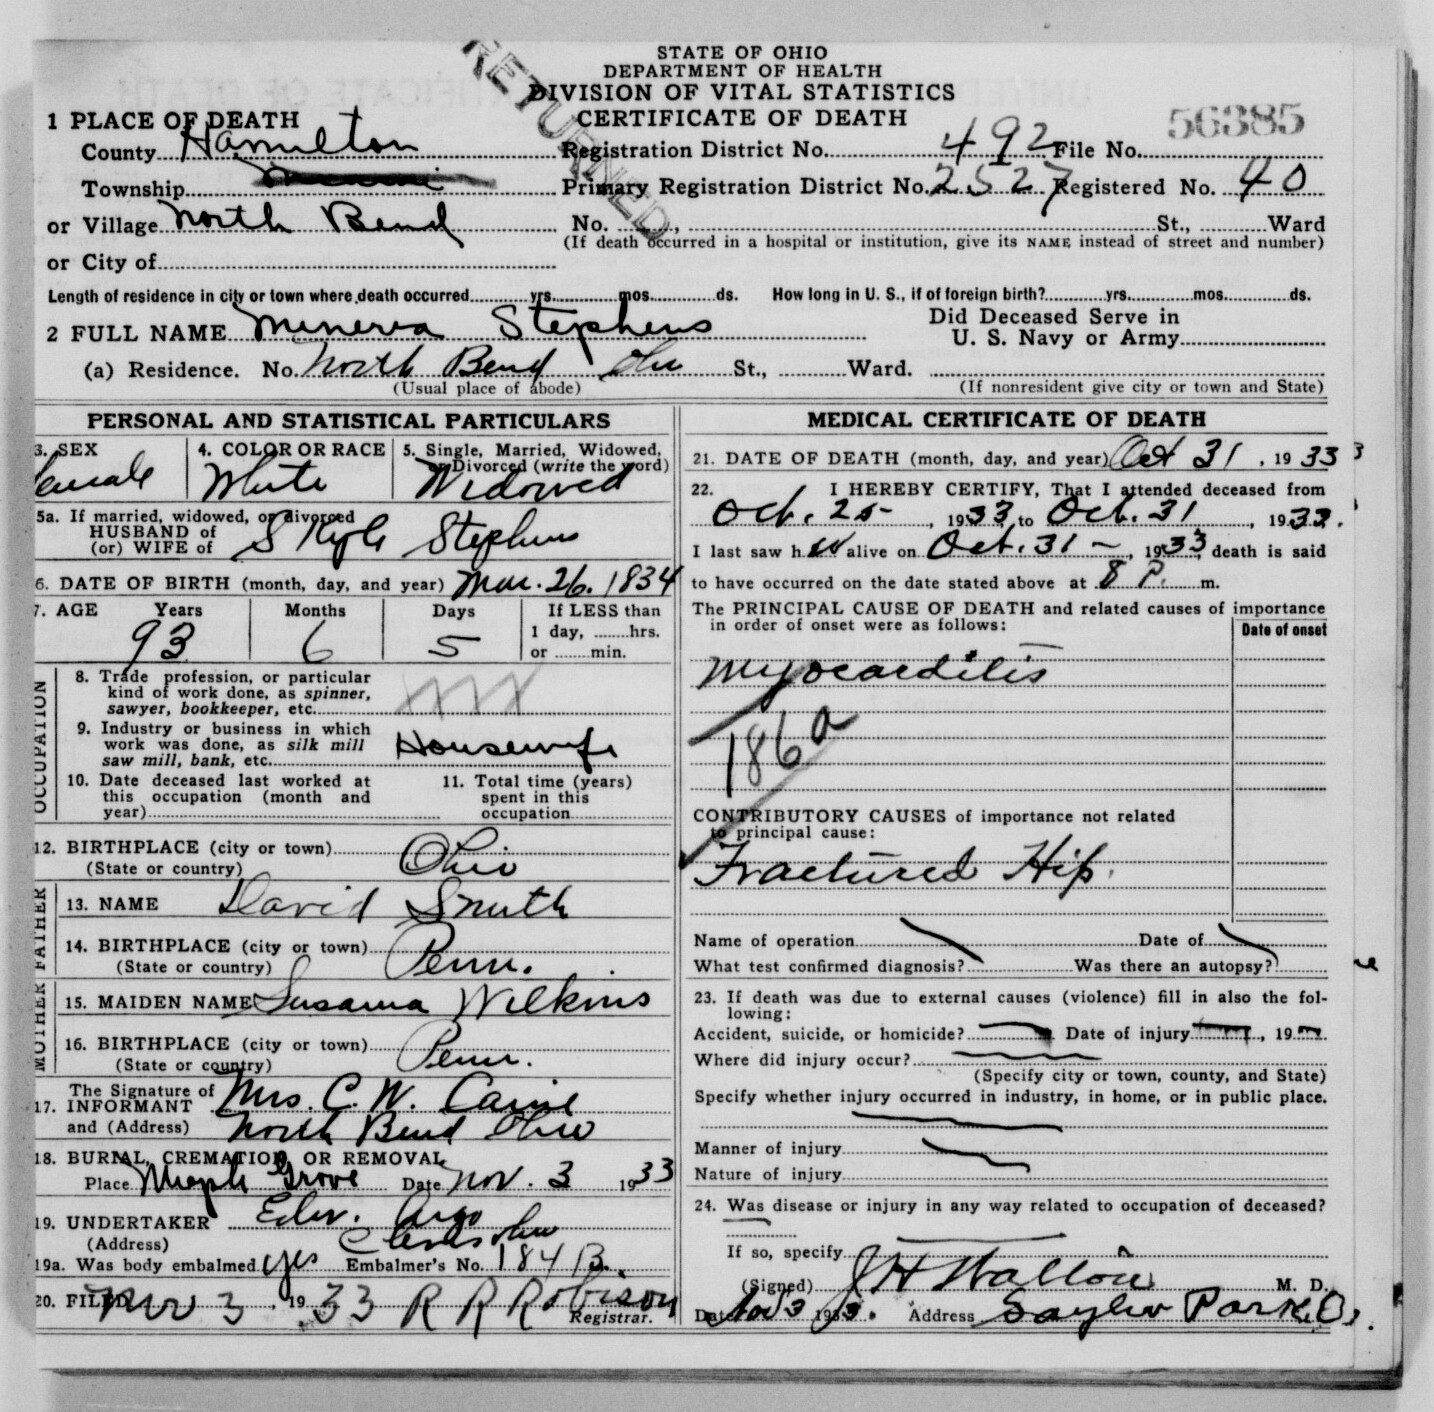 STATE OF OHIO
DEPARTMENT OF HEALTH
DIVISION OF VITAL STATISTICS
CERTIFICATE OF DEATH
RETURNED
56385
1 PLACE OF DEATH
County Hamilton Registration District No. 492 File No.
Township Miami Primary Registration District No. 2527 Registered No. 40
or Village North Bend No. , St., Ward
(If death occurred in a hospital or institution, give its NAME instead of street and number)
or City of
Length of residence in city or town where death occurred yrs. mos. ds. How long in U. S., if of foreign birth? yrs. mos. ds.
2 FULL NAME Minerva Stephens Did Deceased Serve in
U. S. Navy or Army
(a) Residence. No. North Bend Ohio St., Ward.
(Usual place of abode) (If nonresident give city or town and State)
PERSONAL AND STATISTICAL PARTICULARS
3. SEX 4. COLOR OR RACE 5. Single, Married, Widowed,
or Divorced (write the word)
Female White Widowed
5a. If married, widowed, or divorced
HUSBAND of
(or) WIFE of S Kyle Stephens
6. DATE OF BIRTH (month, day, and year) Mar. 26. 1834
7. AGE Years Months Days If LESS than
1 day, hrs.
or min.
93 6 5
OCCUPATION
8. Trade profession, or particular
kind of work done, as spinner,
sawyer, bookkeeper, etc.
9. Industry or business in which
work was done, as silk mill
saw mill, bank, etc. Housewife
10. Date deceased last worked at
this occupation (month and
year)
11. Total time (years)
spent in this
occupation
12. BIRTHPLACE (city or town)
(State or country) Ohio
FATHER
13. NAME David Smith
14. BIRTHPLACE (city or town)
(State or country) Penn.
MOTHER
15. MAIDEN NAME Susanna Wilkins
16. BIRTHPLACE (city or town)
(State or country) Penn.
17. The Signature of
INFORMANT Mrs. C. W. Caine
and (Address) North Bend Ohio
18. BURIAL, CREMATION, OR REMOVAL
Place Maple Grove Date Nov. 3 1933
19. UNDERTAKER Edw. Argo
(Address) Cleves Ohio
19a. Was body embalmed yes Embalmer's No. 184 B.
20. FILED Nov 3, 1933 R R Robison
Registrar.
MEDICAL CERTIFICATE OF DEATH
21. DATE OF DEATH (month, day, and year) Oct 31, 1933
22. I HEREBY CERTIFY, That I attended deceased from
Oct. 25, 1933 to Oct. 31, 1933.
I last saw her alive on Oct. 31, 1933, death is said
to have occurred on the date stated above at 8 P. m.
The PRINCIPAL CAUSE OF DEATH and related causes of importance
in order of onset were as follows:
Date of onset
Myocarditis
186a
CONTRIBUTORY CAUSES of importance not related
to principal cause:
Fractured Hip.
Name of operation Date of
What test confirmed diagnosis? Was there an autopsy?
23. If death was due to external causes (violence) fill in also the fol-
lowing:
Accident, suicide, or homicide? Date of injury , 19
Where did injury occur?
(Specify city or town, county, and State)
Specify whether injury occurred in industry, in home, or in public place.
Manner of injury
Nature of injury
24. Was disease or injury in any way related to occupation of deceased?
If so, specify
(Signed) J H Wallon M. D.
Date Nov 3 1933. Address Sayler Park, O.